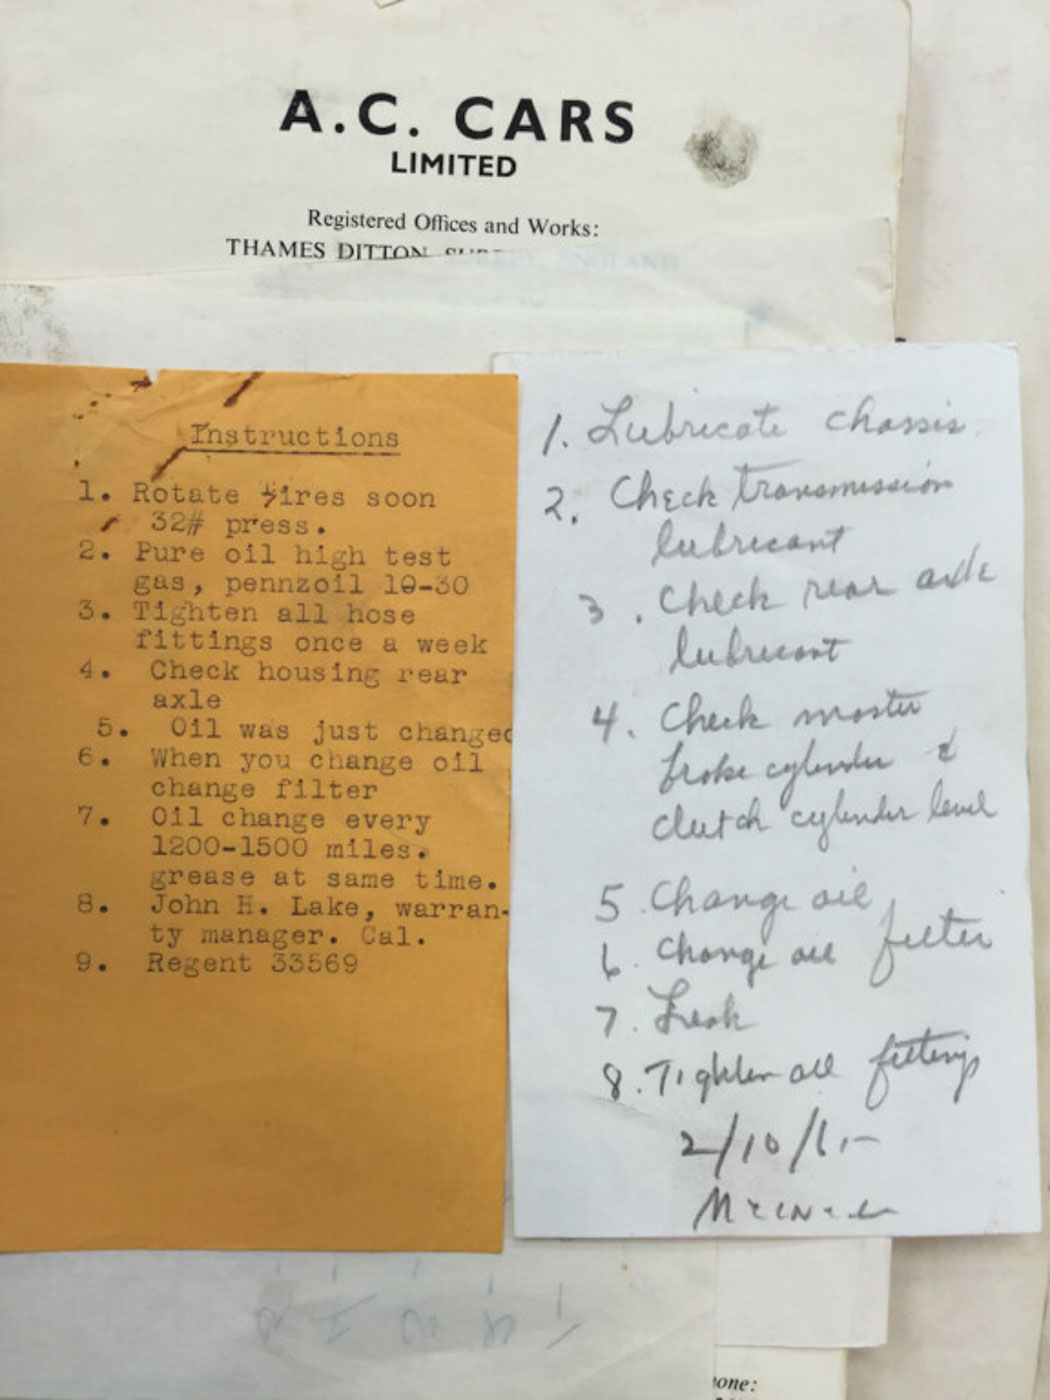 A.C. CARS
LIMITED
Registered Offices and Works:
THAMES DITTON, SURREY, ENGLAND
Instructions
1. Rotate tires soon
32# press.
2. Pure oil high test
gas, pennzoil 10-30
3. Tighten all hose
fittings once a week
4. Check housing rear
axle
5. Oil was just changed
6. When you change oil
change filter
7. Oil change every
1200-1500 miles.
grease at same time.
8. John H. Lake, warran-
ty manager. Cal.
9. Regent 33569
1. Lubricate chassis.
2. Check transmission
lubricant
3. Check rear axle
lubricant
4. Check master
brake cylinder &
clutch cylinder level
5. Change oil
6. Change oil filter
7.
8. Tighten all fittings
2/10/
one: